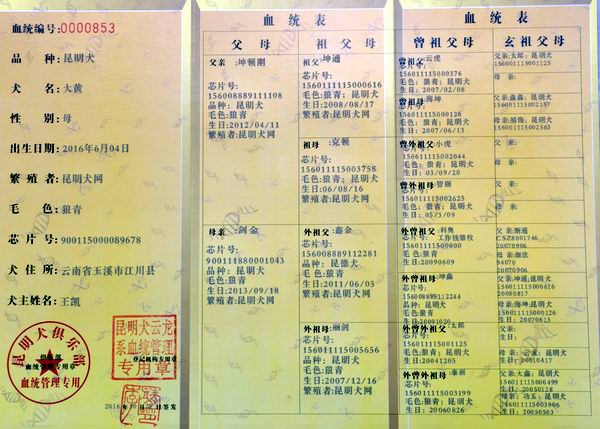 血统编号:0000853
品 种:昆明犬
犬 名:大黄
性 别:母
出生日期:2016年6月04日
繁殖者:昆明犬网
毛 色:狼青
芯片号:900115000089678
犬住所:云南省玉溪市江川县
犬主姓名:王凯
昆明犬俱乐部
血统管理专用
血统管理专用章
昆明犬云龙
系血统管理
专用章
登记机构专用章
血统表
父母
祖父母
父亲:坤顿刚
芯片号:
156008889111108
品种:昆明犬
毛色:狼青
生日:2012/04/11
繁殖者:昆明犬网
母亲:剑金
芯片号:
900111880001043
品种:昆明犬
毛色:狼青
生日:2013/09/18
繁殖者:昆明犬网
祖父:坤通
芯片号:
156011115000616
毛色:狼青;昆明犬
生日:2008/08/17
繁殖者:昆明犬网
祖母:克顿
芯片号:
156011115003758
毛色:狼青;昆明犬
生日:06/08/16
繁殖者:昆明犬网
外祖父:鑫金
芯片号:
156008889112281
品种:昆德犬
毛色:狼青
生日:2011/06/05
繁殖者:昆明犬网
外祖母:丽剑
芯片号:
156011115005656
品种:昆明犬
毛色:狼青
生日:2007/12/16
繁殖者:昆明犬网
血统表
曾祖父母
玄祖父母
曾祖父:云虎
芯片号:
156011115000376
毛色:狼青;昆明犬
生日:2007/02/08
曾祖母:海坤
芯片号:
156011115000126
毛色:狼青;昆明犬
生日:2007/06/13
曾外祖父:小虎
芯片号:
156011115002044
毛色:狼青;昆明犬
生日:03/09/20
曾外祖母:智丽
芯片号:
156011115002625
毛色:狼青;昆明犬
外曾祖父:利奥
芯片号:工作钱德牧
156011115000000
毛色:狼青
生日:20090609
外曾祖母:坤鑫
芯片号:
156008889112244
毛色:狼青;昆明犬
外曾外祖父:太郎
芯片号:
156011115001125
毛色:狼青;昆明犬
生日:20041205
外曾外祖母:泰丽
芯片号:
156011115003199
毛色:狼青;昆明犬
生日:20060826
父亲:太郎;昆明犬
156001115001125
母亲:
父亲:鑫鑫;昆明犬
156011115002157
156011115002563
父亲:
母亲:
父亲:
母亲:
CSZ8001746
20070906
94070
20070906
父亲:坤通;昆明犬
156011115000616
20080817
父亲:
生日:
母亲:云龙;昆明犬
生日:20010411
父亲:大鑫;昆明犬
156011115000499
生日:20050128
母亲:功玉;昆明犬
生日:20050503